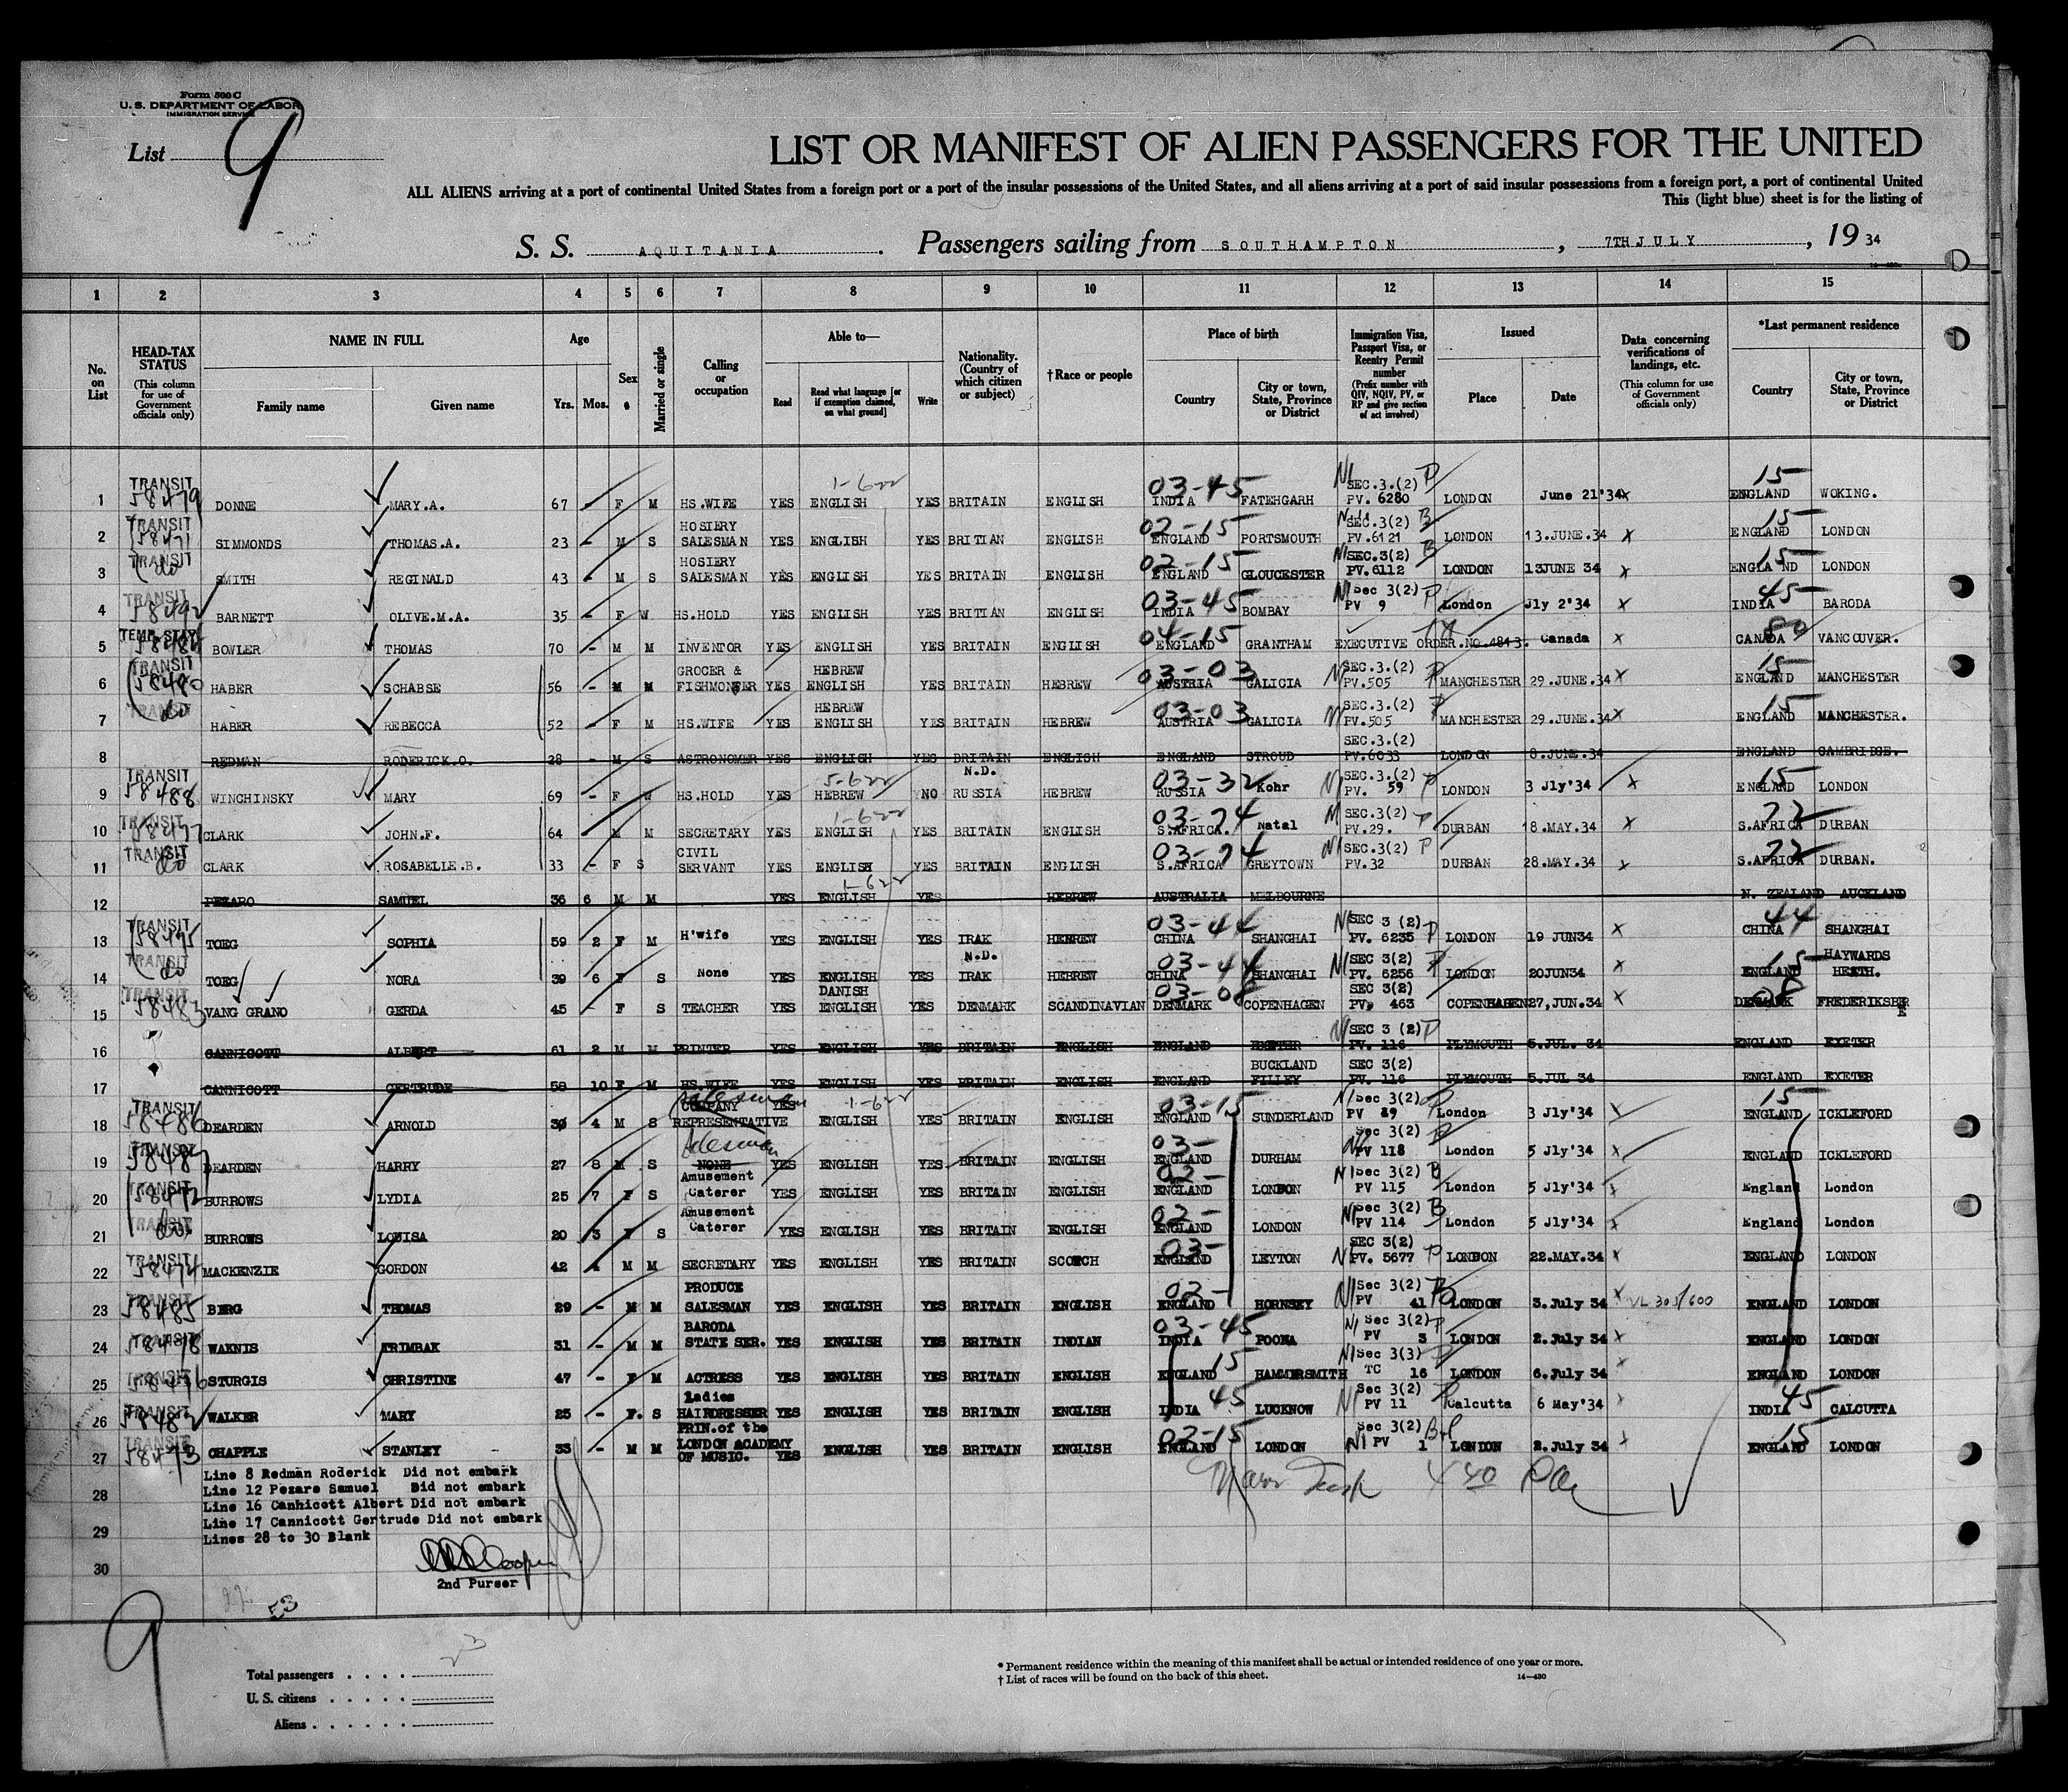 Form 500 C
U. S. DEPARTMENT OF LABOR
IMMIGRATION SERVICE
List 9
LIST OR MANIFEST OF ALIEN PASSENGERS FOR THE UNITED
ALL ALIENS arriving at a port of continental United States from a foreign port or a port of the insular possessions of the United States, and all aliens arriving at a port of said insular possessions from a foreign port, a port of continental United
This (light blue) sheet is for the listing of
S. S. AQUITANIA. Passengers sailing from SOUTHAMPTON, 7TH JULY, 19 34
1 2 3 4 5 6 7 8 9 10 11 12 13 14 15
No. on List
HEAD-TAX STATUS (This column for use of Government officials only)
NAME IN FULL Family name Given name
Age Yrs. Mos.
Sex
Married or single
Calling or occupation
Able to— Read Read what language [or if exemption claimed, on what ground] Write
Nationality. (Country of which citizen or subject)
† Race or people
Place of birth Country City or town, State, Province or District
Immigration Visa, Passport Visa, or Reentry Permit number (Prefix number with QIV, NQIV, PV, or RP and give section of act involved)
Issued Place Date
Data concerning verifications of landings, etc. (This column for use of Government officials only)
*Last permanent residence Country City or town, State, Province or District
1 TRANSIT 58479 DONNE MARY.A. 67 - F M HS.WIFE YES ENGLISH 1-622 YES BRITAIN ENGLISH 03-45 INDIA FATEHGARH SEC.3.(2) PV. 6280 LONDON June 21'34 x 15 ENGLAND WOKING.
2 TRANSIT 58471 SIMMONDS THOMAS.A. 23 - M S HOSIERY SALESMAN YES ENGLISH YES BRITIAN ENGLISH 02-15 ENGLAND PORTSMOUTH SEC.3(2) B PV.6121 LONDON 13.JUNE.34 x 15 ENGLAND LONDON
3 TRANSIT do SMITH REGINALD 43 - M S HOSIERY SALESMAN YES ENGLISH YES BRITAIN ENGLISH 02-15 ENGLAND GLOUCESTER SEC.3(2) B PV.6112 LONDON 13JUNE 34 x 15 ENGLAND LONDON
4 TRANSIT 58492 BARNETT OLIVE.M.A. 35 - F W HS.HOLD YES ENGLISH YES BRITIAN ENGLISH 03-45 INDIA BOMBAY Sec 3(2) P PV 9 London Jly 2'34 x 45 INDIA BARODA
5 TEMP. STAY BOWLER THOMAS 70 - M M INVENTOR YES ENGLISH YES BRITAIN ENGLISH 04-15 ENGLAND GRANTHAM EXECUTIVE ORDER.NO.4813. Canada x CANADA VANCOUVER.
6 TRANSIT 58480 HABER SCHABSE 56 - M M GROCER & FISHMONGER YES HEBREW ENGLISH YES BRITAIN HEBREW 03-03 AUSTRIA GALICIA SEC.3.(2) P PV.505 MANCHESTER 29.JUNE.34 x 15 ENGLAND MANCHESTER
7 TRANSIT do HABER REBECCA 52 - F M HS.WIFE YES HEBREW ENGLISH YES BRITAIN HEBREW 03-03 AUSTRIA GALICIA SEC.3.(2) P PV.505 MANCHESTER 29.JUNE.34 x 15 ENGLAND MANCHESTER.
8 REDMAN RODERICK.O. 28 - M S ASTRONOMER YES ENGLISH YES BRITAIN ENGLISH ENGLAND STROUD SEC.3.(2) PV.6033 LONDON 8.JUNE.34 ENGLAND CAMBRIDGE.
9 TRANSIT 58488 WINCHINSKY MARY 69 - F W HS.HOLD YES 5-622 HEBREW NO N.D. RUSSIA HEBREW 03-32 RUSSIA Kohr SEC.3.(2) P PV. 59 LONDON 3 Jly'34 x 15 ENGLAND LONDON
10 TRANSIT 58477 CLARK JOHN.F. 64 - M M SECRETARY YES 1-622 ENGLISH YES BRITAIN ENGLISH 03-74 S.AFRICA. Natal SEC.3(2) P PV.29. DURBAN 18.MAY.34 x 72 S.AFRICA DURBAN
11 TRANSIT do CLARK ROSABELLE.B. 33 - F S CIVIL SERVANT YES ENGLISH YES BRITAIN ENGLISH 03-74 S.AFRICA GREYTOWN SEC.3(2) P PV.32 DURBAN 28.MAY.34 x 72 S.AFRICA DURBAN.
12 PEZARO SAMUEL 36 6 M M YES 1-622 ENGLISH YES HEBREW AUSTRALIA MELBOURNE N. ZEALAND AUCKLAND
13 TRANSIT 58475 TOEG SOPHIA 59 2 F M H'wife YES ENGLISH YES IRAK HEBREW 03-44 CHINA SHANGHAI SEC 3 (2) P PV. 6235 LONDON 19 JUN34 x 44 CHINA SHANGHAI
14 TRANSIT do TOEG NORA 39 6 F S None YES ENGLISH YES N.D. IRAK HEBREW 03-44 CHINA SHANGHAI SEC 3(2) PV. 6256 LONDON 20JUN34 x 15 ENGLAND HAYWARDS HEATH.
15 TRANSIT 58483 VANG GRANO GERDA 45 - F S TEACHER YES DANISH ENGLISH YES DENMARK SCANDINAVIAN 03-08 DENMARK COPENHAGEN SEC 3(2) PV, 463 COPENHAGEN 27,JUN.34 x 08 DENMARK FREDERIKSBE
16 CANNICOTT ALBERT 61 2 M M PRINTER YES ENGLISH YES BRITAIN ENGLISH ENGLAND EXETER SEC 3 (2) P PV. 116 PLYMOUTH 5.JUL. 34 ENGLAND EXETER
17 CANNICOTT GERTRUDE 58 10 F M HS.WIFE YES ENGLISH YES BRITAIN ENGLISH ENGLAND BUCKLAND FILLEY SEC 3(2) PV. 116 PLYMOUTH 5.JUL 34 ENGLAND EXETER
18 TRANSIT 58486 DEARDEN ARNOLD 30 4 M S Salesman COMPANY REPRESENTATIVE YES 1-622 ENGLISH YES BRITAIN ENGLISH 03-15 ENGLAND SUNDERLAND Sec 3(2) PV 89 London 3 Jly'34 x 15 ENGLAND ICKLEFORD
19 TRANSIT 58487 DEARDEN HARRY 27 8 M S Salesman NONE YES ENGLISH YES BRITAIN ENGLISH 03- ENGLAND DURHAM Sec 3(2) PV 118 London 5 Jly'34 x ENGLAND ICKLEFORD
20 TRANSIT 58472 BURROWS LYDIA 25 7 F S Amusement Caterer YES ENGLISH YES BRITAIN ENGLISH 02- ENGLAND LONDON Sec 3(2) B PV 115 London 5 Jly'34 x England London
21 TRANSIT do. BURROWS LOUISA 20 3 F S Amusement Caterer YES ENGLISH YES BRITAIN ENGLISH 02- ENGLAND LONDON Sec 3(2) B PV 114 London 5 Jly'34 x England London
22 TRANSIT 58474 MACKENZIE GORDON 42 4 M M SECRETARY YES ENGLISH YES BRITAIN SCOTCH 03- ENGLAND LEYTON SEC 3(2) P PV. 5677 LONDON 22.MAY.34 x ENGLAND LONDON
23 TRANSIT 58485 BERG THOMAS 29 - M M PRODUCE SALESMAN YES ENGLISH YES BRITAIN ENGLISH 02- ENGLAND HORNSEY Sec 3(2) PV 41 LONDON 3.July 34 x VL 305/600 ENGLAND LONDON
24 TRANSIT 58478 WAKNIS TRIMBAK 31 - M M BARODA STATE SER. YES ENGLISH YES BRITAIN INDIAN 03-45 INDIA POONA Sec 3(2) P PV 3 LONDON 2.July 34 x ENGLAND LONDON
25 TRANSIT 58476 STURGIS CHRISTINE 47 - F M ACTRESS YES ENGLISH YES BRITAIN ENGLISH 15 ENGLAND HAMMERSMITH Sec 3(3) TC 16 LONDON 6.July 34 x ENGLAND LONDON
26 TRANSIT 58482 WALKER MARY 25 - F. S Ladies HAIRDRESSER YES ENGLISH YES BRITAIN ENGLISH 45 INDIA LUCKNOW Sec 3(2) P PV 11 Calcutta 6 May'34 x 45 INDIA CALCUTTA
27 TRANSIT 58473 CHAPPLE STANLEY 33 - M M PRIN.of the LONDON ACADEMY OF MUSIC. YES ENGLISH YES BRITAIN ENGLISH 02-15 ENGLAND LONDON Sec 3(2) PV 1 LONDON 2.July 34 x 15 ENGLAND LONDON
Line 8 Redman Roderick Did not embark
28 Line 12 Pezaro Samuel Did not embark
Line 16 Cannicott Albert Did not embark
29 Line 17 Cannicott Gertrude Did not embark
Lines 28 to 30 Blank
30 Cooper
2nd Purser
53
9
Total passengers . . . . 23
U. S. citizens . . . . .
Aliens . . . . . .
* Permanent residence within the meaning of this manifest shall be actual or intended residence of one year or more.
† List of races will be found on the back of this sheet.
14—430